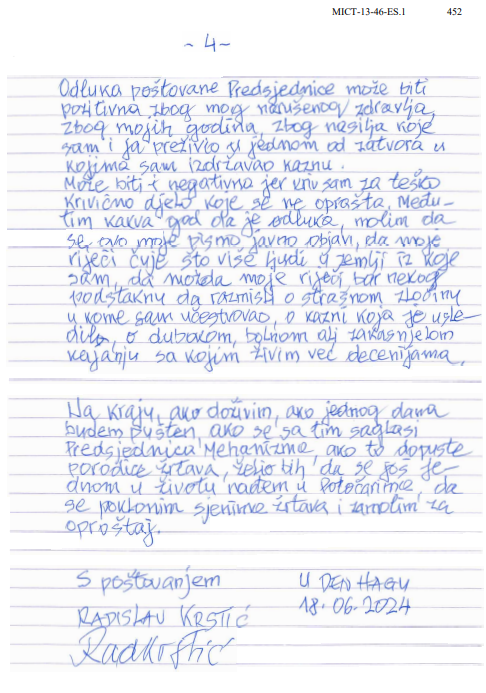 MICT-13-46-ES.1 452
~ 4 ~
Odluka poštovane Predsjednice može biti
pozitivna zbog mog narušenog zdravlja,
zbog mojih godina, zbog nasilja koje
sam i ja preživio u jednom od zatvora u
kojima sam izdržavao kaznu.
Može biti i negativna jer kriv sam za teško
krivično djelo koje se ne oprašta. Među-
tim kakva god da je odluka, molim da
se ovo moje pismo javno objavi, da moje
riječi čuje što više ljudi u zemlji iz koje
sam, da možda moje riječi bar nekog
podstaknu da razmisli o strašnom zločinu
u kome sam učestvovao, o kazni koja je usle-
dila, o dubokom, bolnom ali zakasnjelom
kajanju sa kojim živim već decenijama.
Na kraju, ako doživim, ako jednog dana
budem pušten, ako se sa tim saglasi
Predsjednica Mehanizma, ako to dopuste
porodice žrtava, želio bih, da se još je-
dnom u životu nađem u Potočarima, da
se poklonim sjenima žrtava i zamolim za
oproštaj.
S poštovanjem U DEN HAGU
RADISLAV KRSTIĆ 18.06.2024
RadKrstić